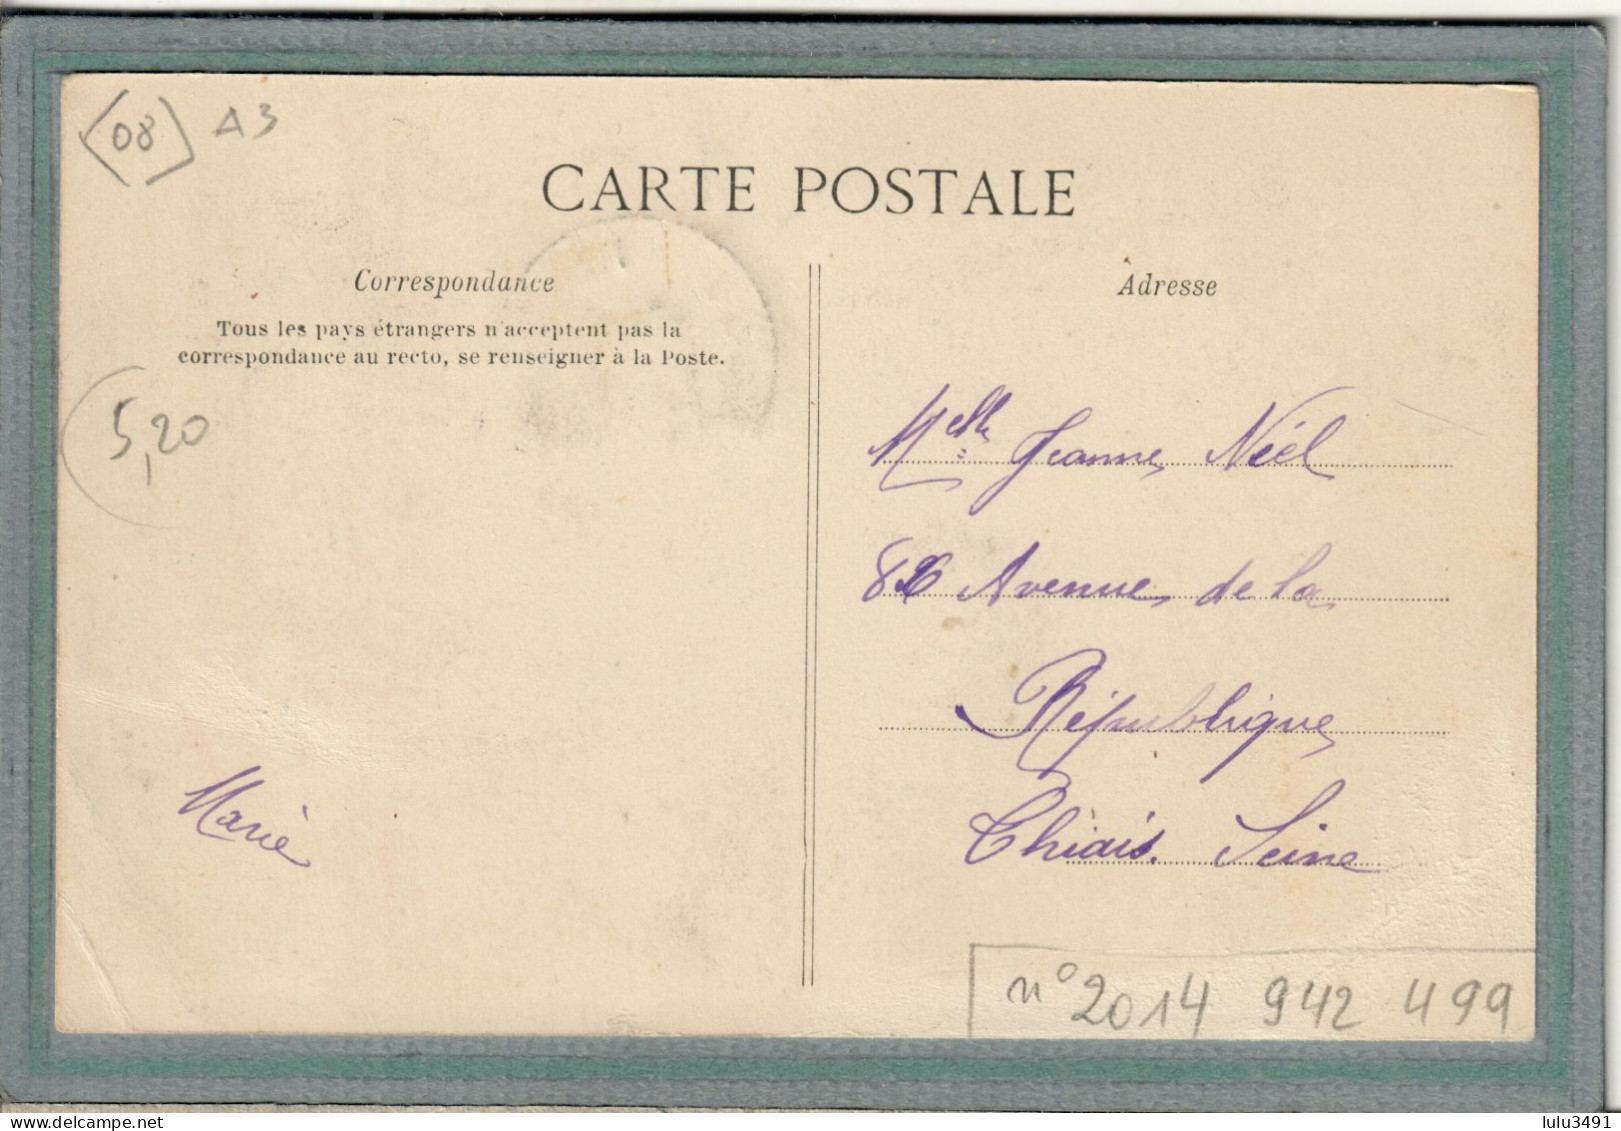 (08) A3
CARTE POSTALE
Correspondance
Tous les pays étrangers n'acceptent pas la
correspondance au recto, se renseigner à la Poste.
5,20
Marie
Adresse
Melle Jeanne Néel
Avenue de la
République
Thiais. Seine
n° 2014 942 499
lulu3491